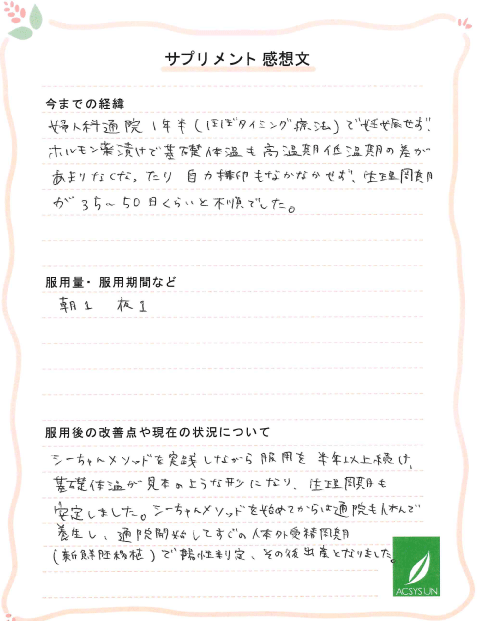 サプリメント 感想文
今までの経緯
婦人科通院 1年半 (ほぼタイミング療法) で妊娠せず、
ホルモン薬漬けで基礎体温も高温期低温期の差が
あまりなくなったり 自力排卵もなかなかせず、生理周期
が 35〜50日くらいと不順でした。
服用量・服用期間など
朝1 夜1
服用後の改善点や現在の状況について
シーちゃんメソッドを実践しながら服用を 半年以上続け、
基礎体温が見本のような形になり、生理周期も
安定しました。シーちゃんメソッドを始めてからは通院も休んで
養生し、通院開始してすぐの体外受精周期
(新鮮胚移植) で陽性判定、その後出産となりました。
ACSYSUN